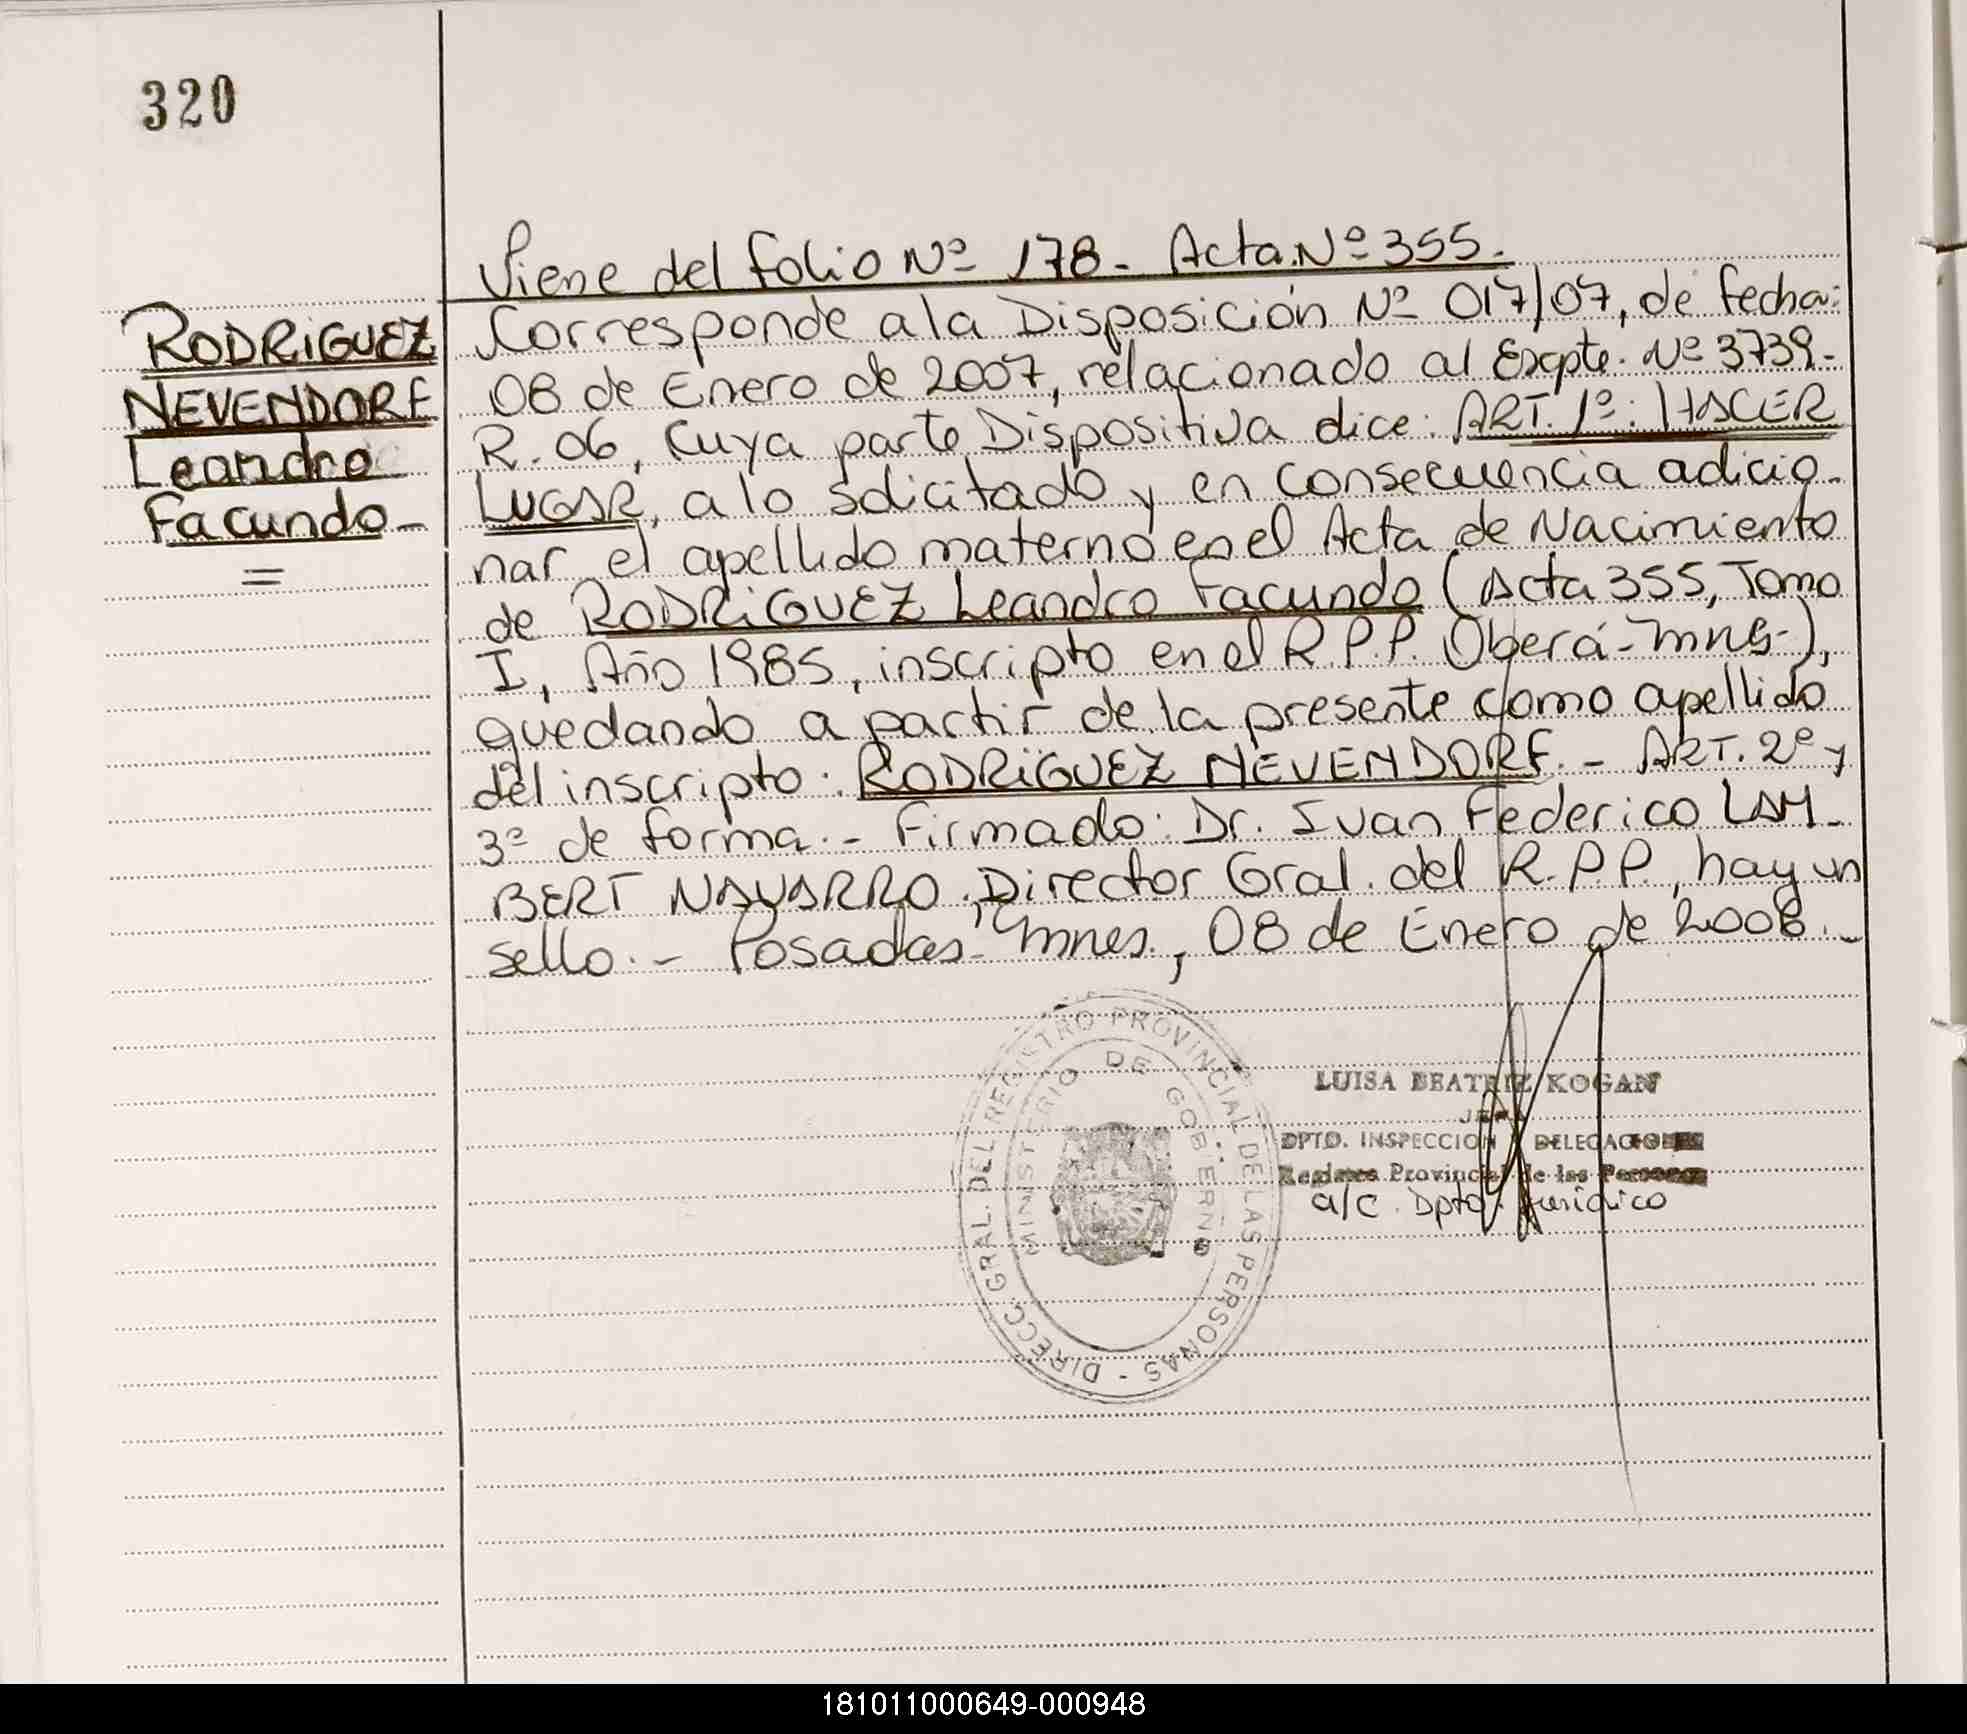 320
Viene del folio Nº 178 - Acta Nº 355.
RODRiGUEZ
NEVENDORF
Leandro
Facundo -
=
Corresponde a la Disposición Nº 017/07, de fecha:
08 de Enero de 2007, relacionado al Expte. Nº 3739-
R. 06, Cuya parte Dispositiva dice: ART. 1º: HACER
LUGAR, a lo solicitado y en consecuencia adicio-
nar el apellido materno en el Acta de Nacimiento
de RODRiGUEZ Leandro Facundo (Acta 355, Tomo
I, Año 1985, inscripto en el R.P.P. Oberá-Mnes-),
quedando a partir de la presente como apellido
del inscripto: RODRiGUEZ NEVENDORF. - ART. 2º y
3º de forma.- Firmado: Dr. Ivan Federico LAM-
BERT NAVARRO, Director Gral. del R.P.P., hay un
sello.- Posadas- Mnes., 08 de Enero de 2008.-
DIRECC. GRAL. DEL REGISTRO PROVINCIAL DE LAS PERSONAS -
MINISTERIO DE GOBIERNO
LUISA BEATRIZ KOGAN
JEFA
DPTO. INSPECCION DELEGACIONES
Registro Provincial de las Personas
a/c. Dpto. Jurídico
181011000649-000948